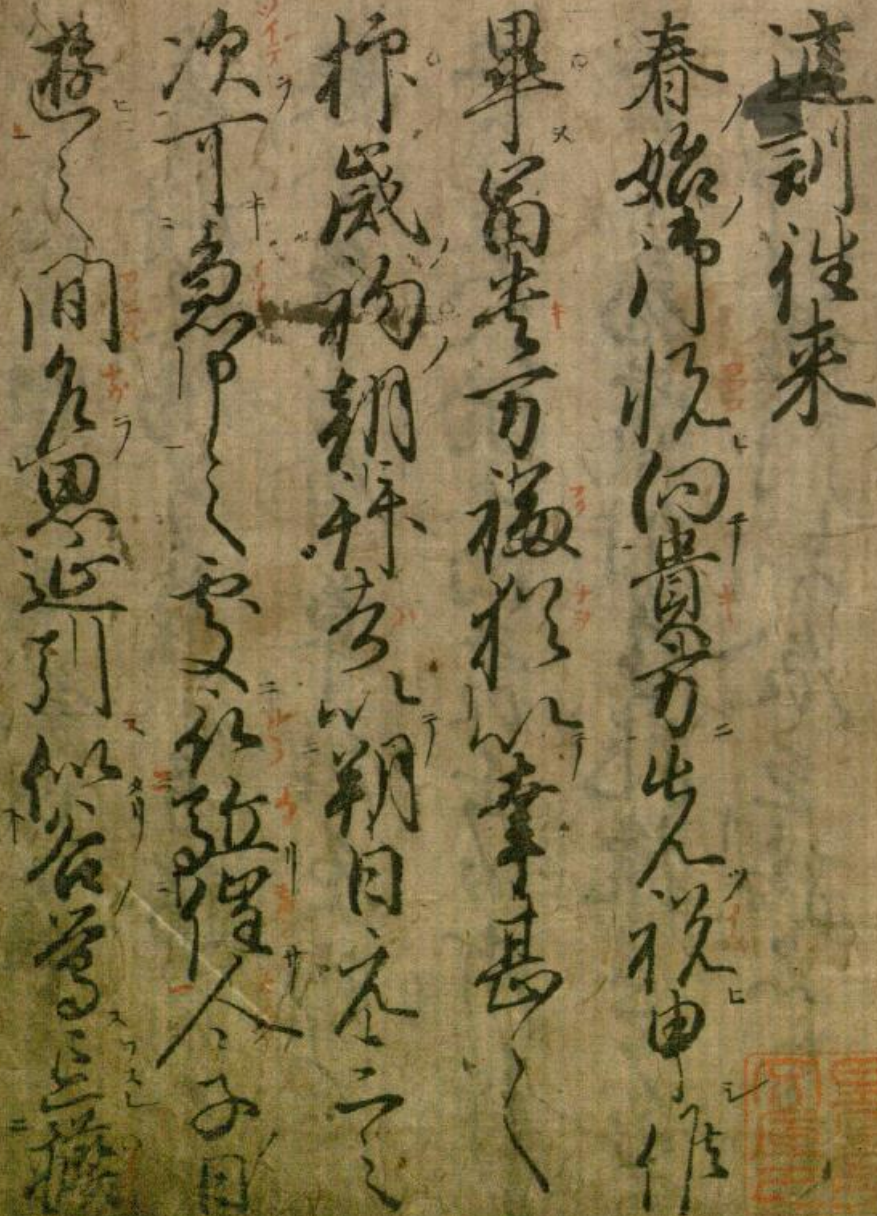 庭訓往来
春始御悦向貴方先祝申候
畢富貴万福猶以幸甚〱
抑歳初朝拝者以朔日元三之
次可急申之処被駈催人々子日
遊之間乍思延引似谷鶯忘檐